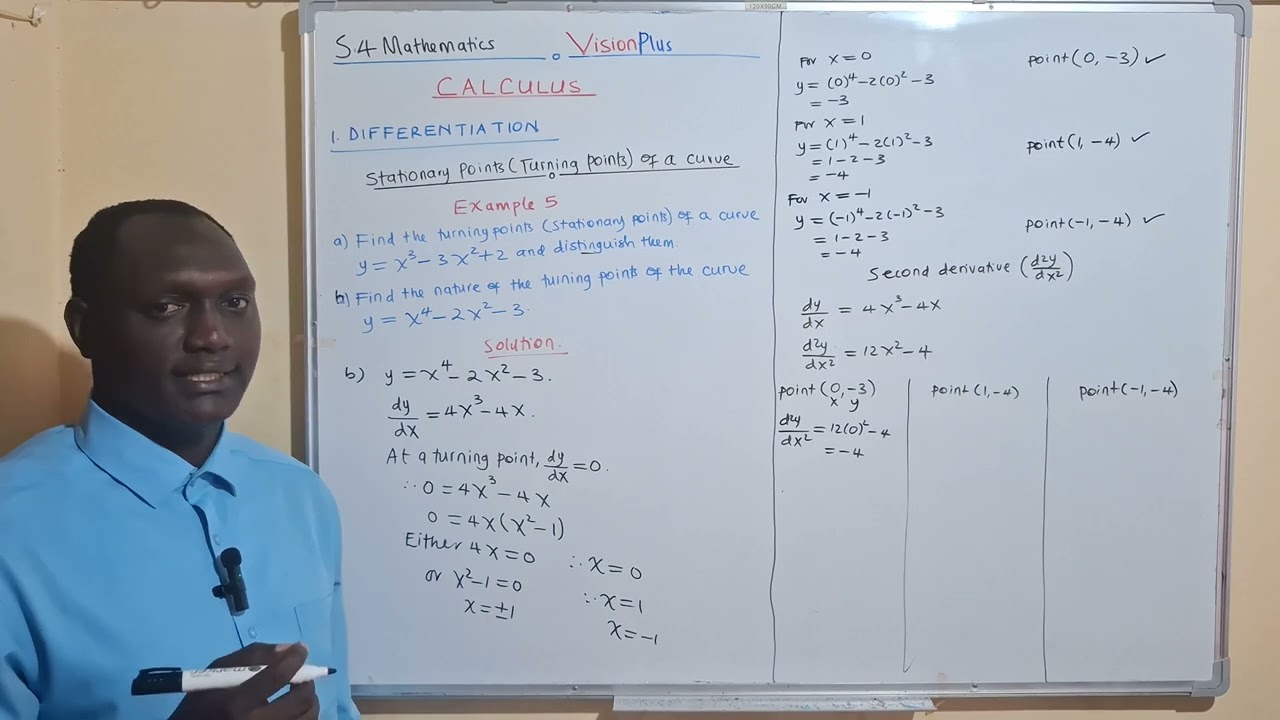 120X90CM
S.4 Mathematics
VisionPlus
CALCULUS
1. DIFFERENTIATION
Stationary Points (Turning points) of a curve
Example 5
a) Find the turning points (stationary points) of a curve
y = x³ - 3x² + 2 and distinguish them.
b) Find the nature of the turning points of the curve
y = x⁴ - 2x² - 3.
Solution.
b) y = x⁴ - 2x² - 3.
dy/dx = 4x³ - 4x.
At a turning point, dy/dx = 0.
∴ 0 = 4x³ - 4x
0 = 4x(x² - 1)
Either 4x = 0 ∴ x = 0
or x² - 1 = 0
x = ±1 ∴ x = 1
x = -1
For x = 0 point (0, -3) ✓
y = (0)⁴ - 2(0)² - 3
= -3
For x = 1
y = (1)⁴ - 2(1)² - 3 point (1, -4) ✓
= 1 - 2 - 3
= -4
For x = -1
y = (-1)⁴ - 2(-1)² - 3 point (-1, -4) ✓
= 1 - 2 - 3
= -4
Second derivative (d²y/dx²)
dy/dx = 4x³ - 4x
d²y/dx² = 12x² - 4
point (0, -3)
x y
d²y/dx² = 12(0)² - 4
= -4
point (1, -4)
point (-1, -4)